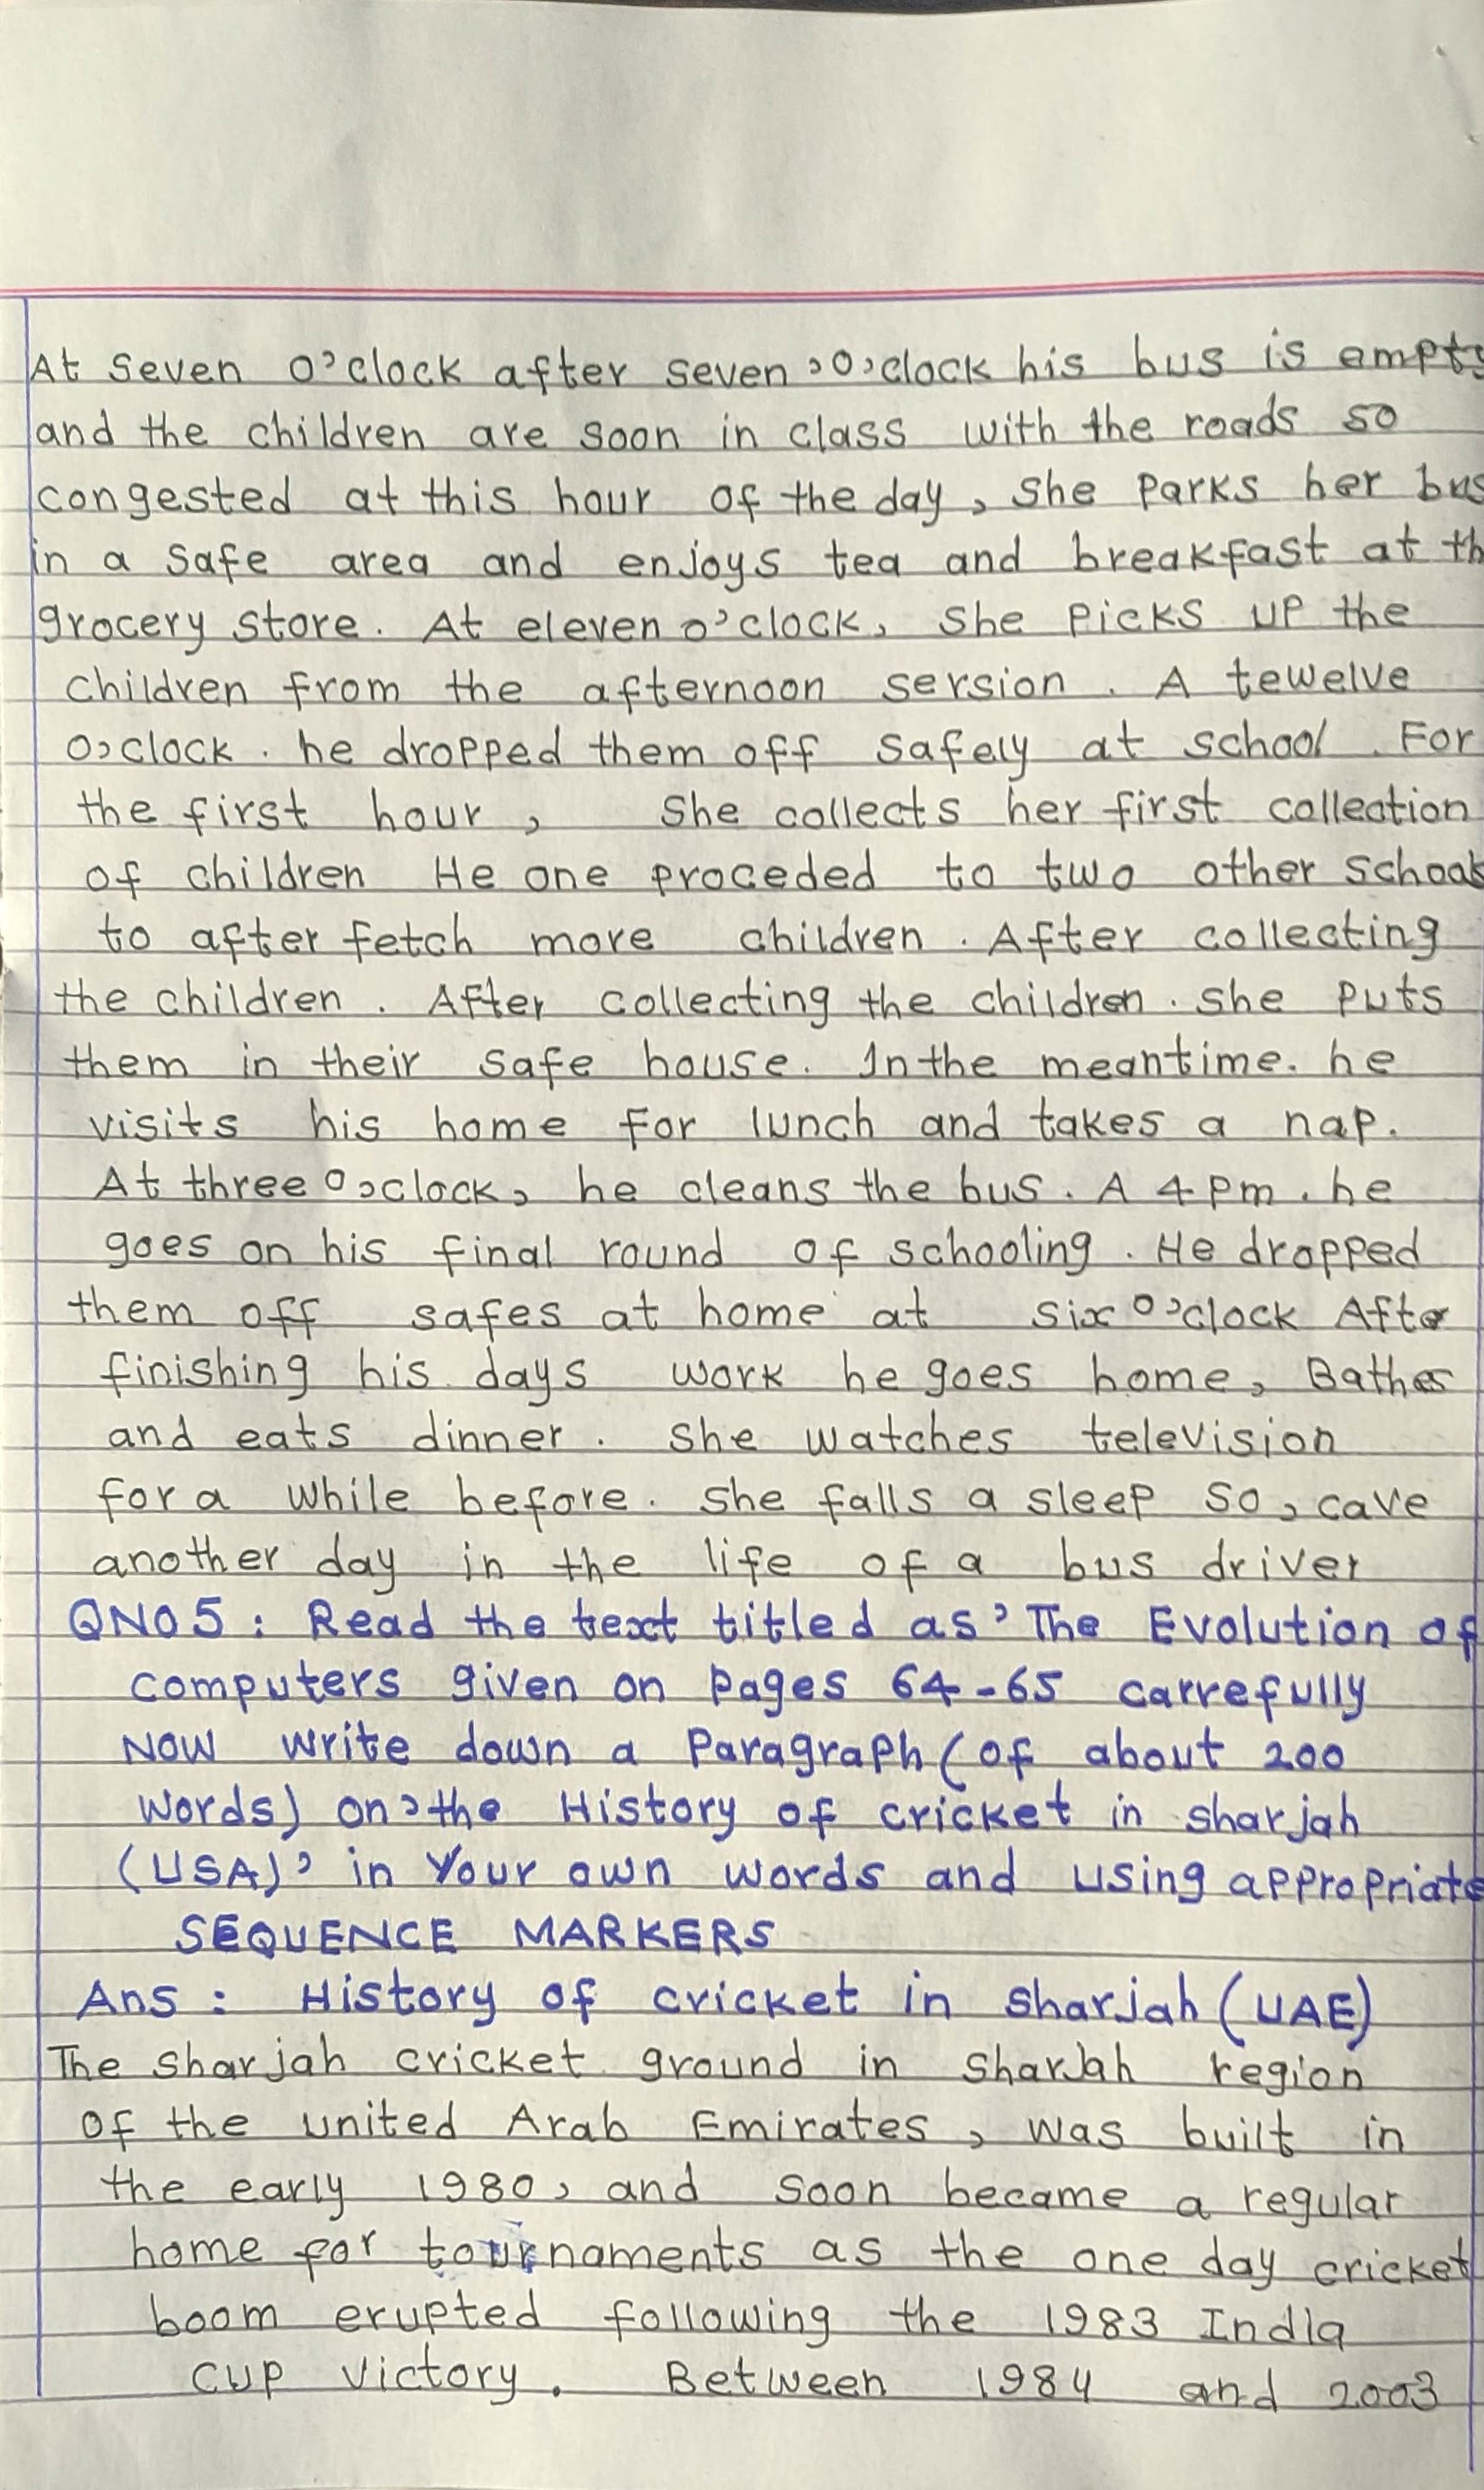 At seven o'clock after seven 'O'clock his bus is empty
and the children are soon in class with the roads so
congested at this hour of the day, she parks her bus
in a safe area and enjoys tea and breakfast at th
grocery store. At eleven o'clock, she picks up the
children from the afternoon sersion. A tewelve
o'clock. he dropped them off safely at school. For
the first hour, she collects her first collection
of children He one proceded to two other school
to after fetch more children. After collecting
the children. After collecting the children. she puts
them in their safe house. In the meantime. he
visits his home for lunch and takes a nap.
At three o'clock, he cleans the bus. A 4 pm. he
goes on his final round of schooling. He dropped
them off safes at home at six o'clock After
finishing his days work he goes home, Bathes
and eats dinner. she watches television
for a while before. she falls a sleep so, cave
another day in the life of a bus driver
QNO5: Read the text titled as' The Evolution of
computers given on pages 64-65 carrefully
NOW write down a paragraph (of about 200
words) on'the History of cricket in sharjah
(USA)' in Your own words and using appropriate
SEQUENCE MARKERS
Ans: History of cricket in sharjah (UAE)
The sharjah cricket ground in sharjah region
of the united Arab Emirates, was built in
the early 1980, and soon became a regular
home for tournaments as the one day cricket
boom erupted following the 1983 India
cup victory. Between 1984 and 2003